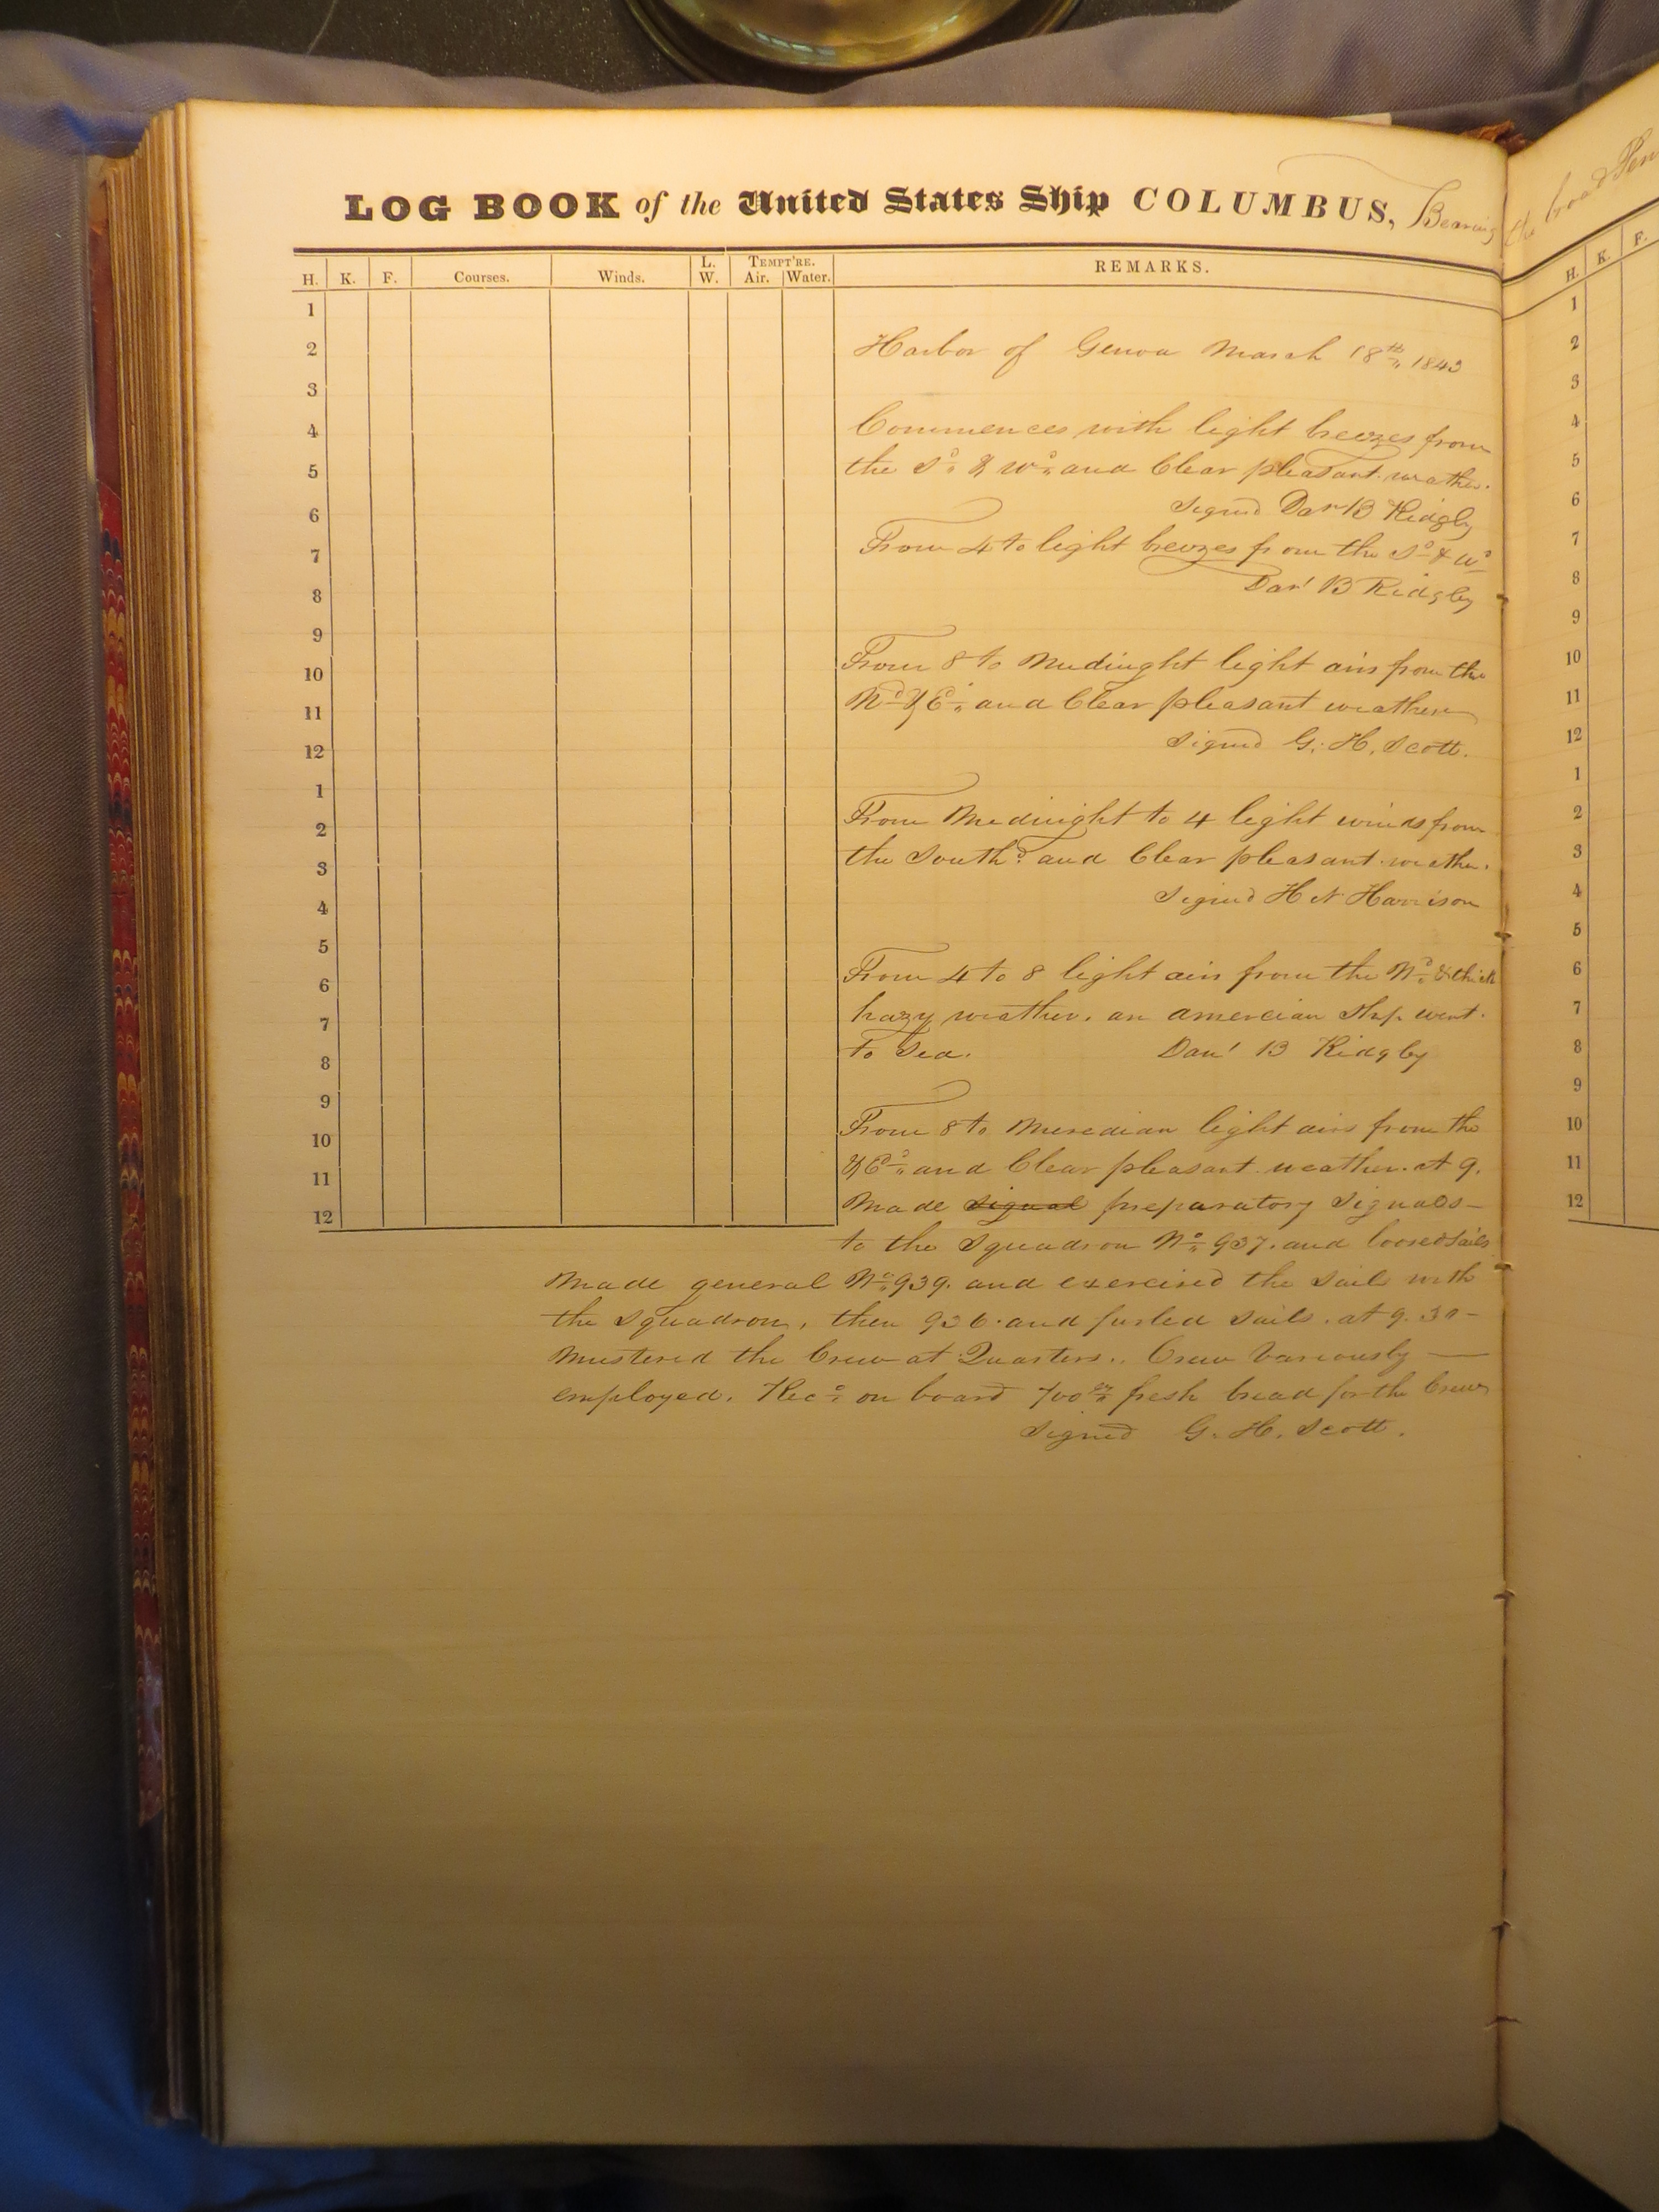 LOG BOOK of the United States Ship COLUMBUS, Bearing
the broad Pen
H. K. F. Courses. Winds. L. W. TEMPT'RE. Air. Water. REMARKS.
H. K. F.
1
2
3
4
5
6
7
8
9
10
11
12
1
2
3
4
5
6
7
8
9
10
11
12
Harbor of Genoa March 18th 1843
Commences with light breezes from
the Sd & Wd and Clear pleasant weather.
Signed Danl B Ridgly
From 4 to light breezes from the Sd & Wd
Danl B Ridgely
From 8 to Mudinght light airs from the
Nd & Ed and Clear pleasant weather
Signed G. H. Scott.
From Medinight to 4 light winds from
the Southd and Clear pleasant weather.
Signed H N Harrison
From 4 to 8 light airs from the Nd & thick
hazy weather. an amereian Ship went
to Sea. Danl B Ridgley
From 8 to Meredian light airs from the
& Ed and Clear pleasant weather. at 9.
Made signal preparatory Signals
to the Squadron No 937. and loosed sails
Made general No 939. and exercised the Sails with
the Squadron, then 936. and furled Sails. at 9.30
Mustered the Crew at Quarters. Crew Variously
employed. Recd on board 700 fresh bread for the Crew
Signed G. H. Scott.
1
2
3
4
5
6
7
8
9
10
11
12
1
2
3
4
5
6
7
8
9
10
11
12